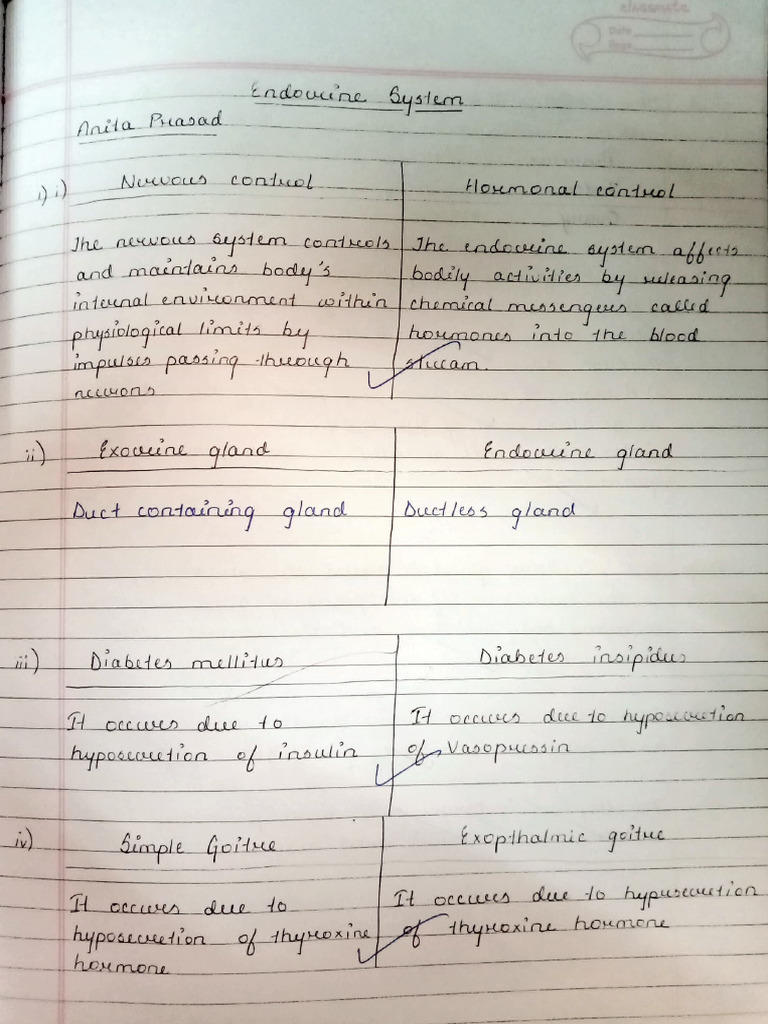 classmate
Date
Page
Endocrine System
Anita Prasad
1) i) Nervous control
The nervous system controls
and maintains body's
internal environment within
physiological limits by
impulses passing through
neurons
Hormonal control
The endocrine system affects
bodily activities by releasing
chemical messengers called
hormones into the blood
stream.
ii) Exocrine gland
Duct containing gland
Endocrine gland
Ductless gland
iii) Diabetes mellitus
It occurs due to
hyposecretion of insulin
Diabetes insipidus
It occurs due to hyposecretion
of Vasopressin
iv) Simple Goitre
It occurs due to
hyposecretion of thyroxine
hormone
Exopthalmic goitre
It occurs due to hypersecretion
of thyroxine hormone